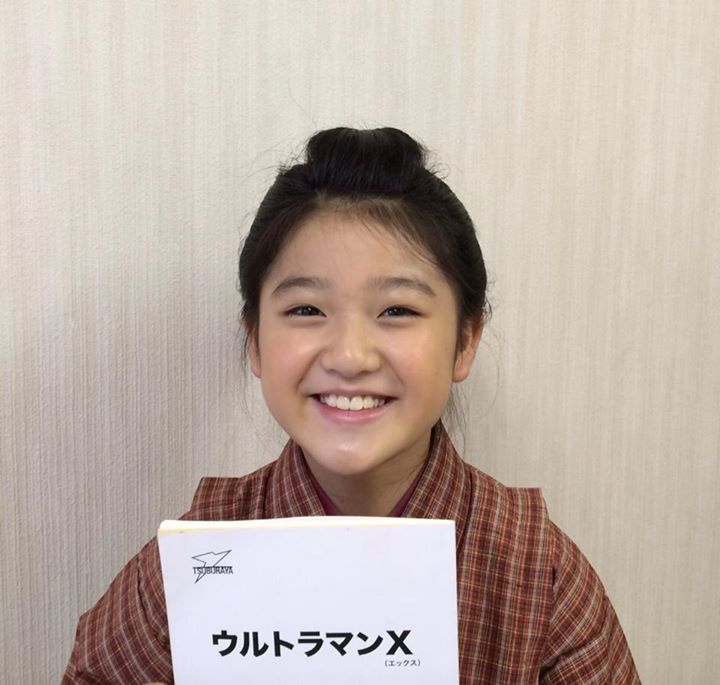 TSUBURAYA
ウルトラマンX
(エックス)